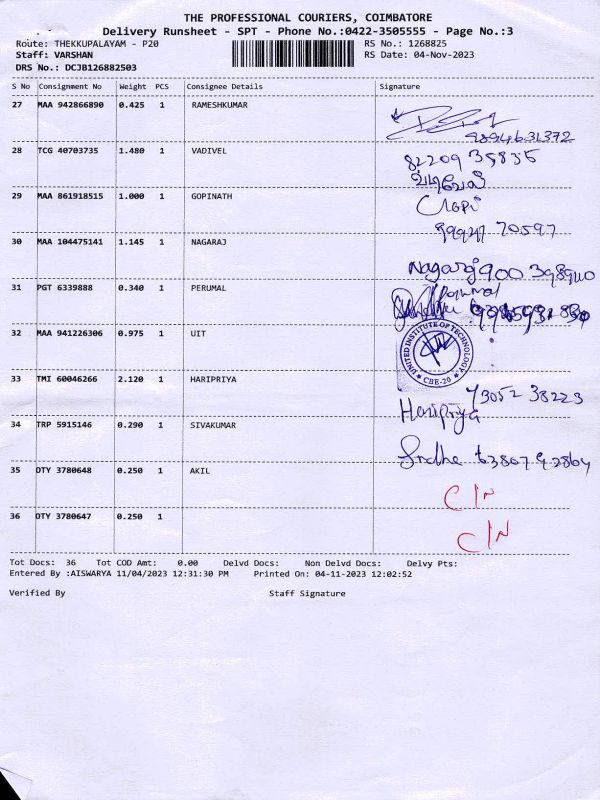 THE PROFESSIONAL COURIERS, COIMBATORE
Delivery Runsheet - SPT - Phone No.:0422-3505555 - Page No.:3
Route: THEKKUPALAYAM - P20 RS No.: 1268825
Staff: VARSHAN RS Date: 04-Nov-2023
DRS No.: DCJB126882503
S No Consignment No Weight PCS Consignee Details Signature
27 MAA 942866890 0.425 1 RAMESHKUMAR
9894631372
28 TCG 40703735 1.480 1 VADIVEL 82209 35835
வடிவேல்
29 MAA 861918515 1.000 1 GOPINATH Gopi
70597
30 MAA 104475141 1.145 1 NAGARAJ
Nagaraj 900 398940
31 PGT 6339888 0.340 1 PERUMAL
32 MAA 941226306 0.975 1 UIT
UNITED INSTITUTE OF TECHNOLOGY
CBE-20
33 TMI 60046266 2.120 1 HARIPRIYA
73052 38223
Haripriya
34 TRP 5915146 0.290 1 SIVAKUMAR
35 OTY 3780648 0.250 1 AKIL
C/N
36 OTY 3780647 0.250 1
C/N
Tot Docs: 36 Tot COD Amt: 0.00 Delvd Docs: Non Delvd Docs: Delvy Pts:
Entered By :AISWARYA 11/04/2023 12:31:30 PM Printed On: 04-11-2023 12:02:52
Verified By Staff Signature